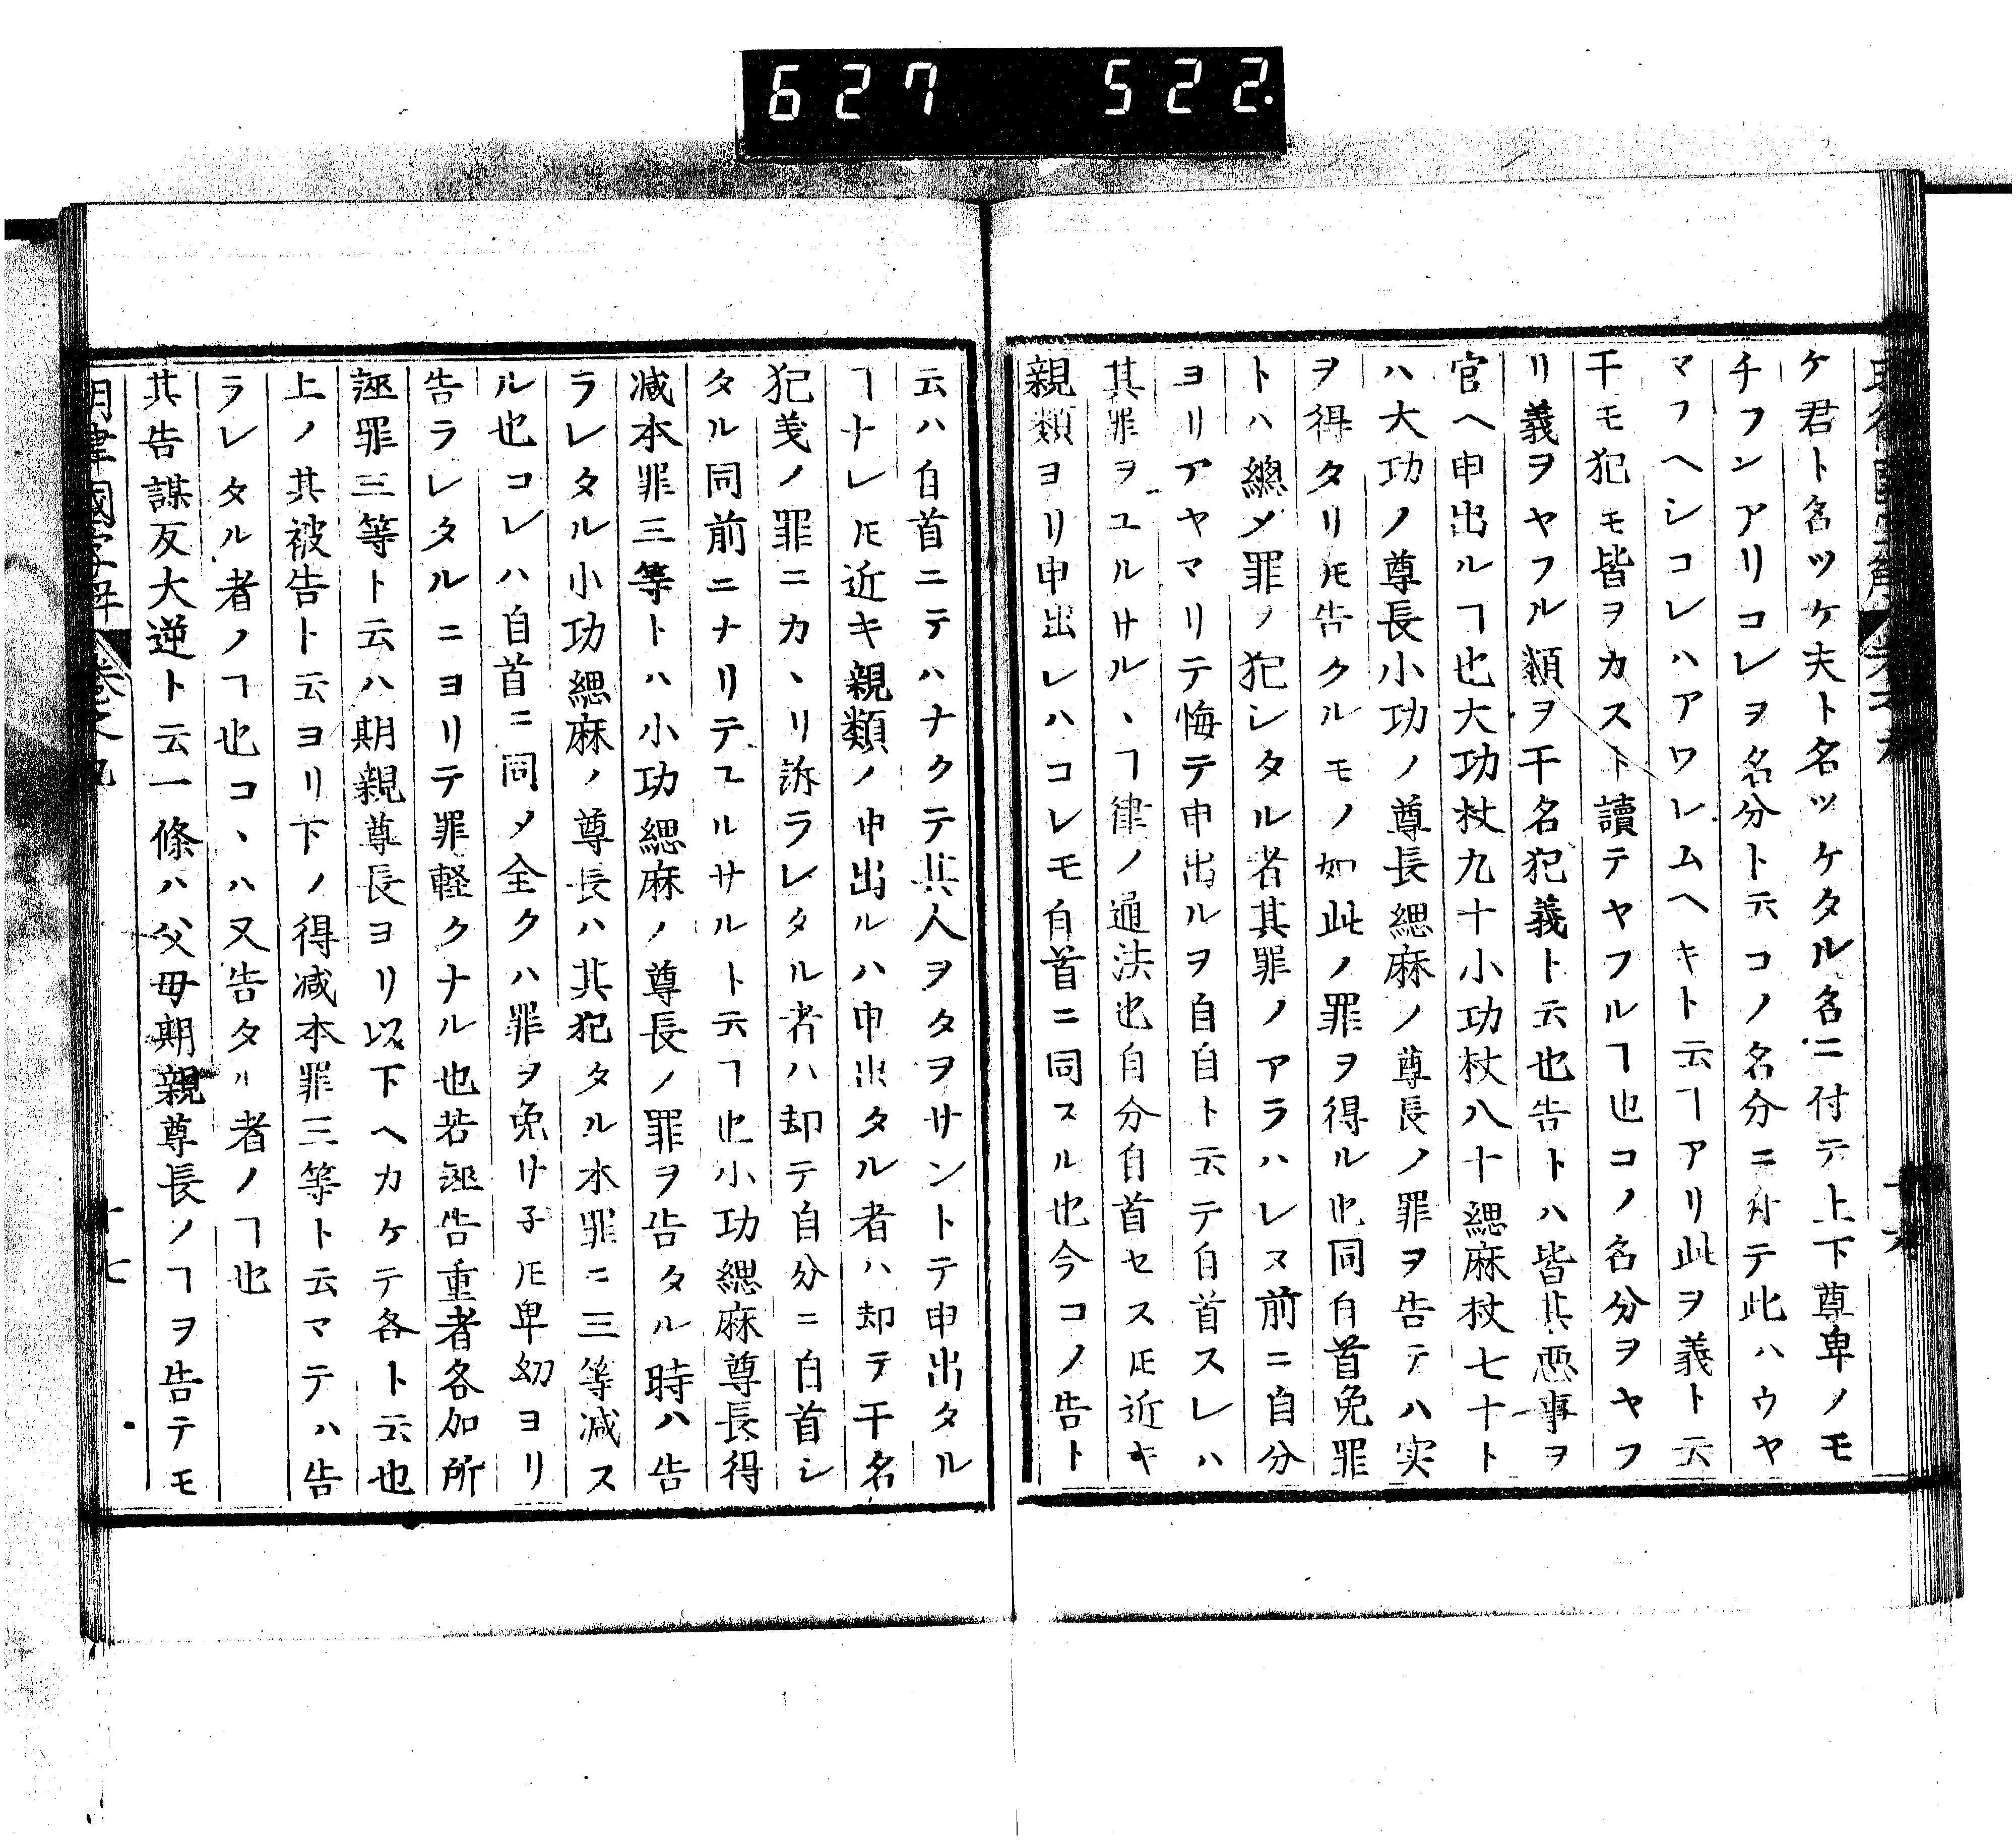 627 522.
ケ君ト名ツケ夫ト名ツケタル名ニ付テ上下尊卑ノモ
チフンアリコレヲ名分ト云コノ名分ニ付テ此ハウヤ
マフヘシコレハアワレムヘキト云ヿアリ此ヲ義ト云
干モ犯モ皆ヲカスト讀テヤフルヿ也コノ名分ヲヤフ
リ義ヲヤフル類ヲ干名犯義ト云也告トハ皆其悪事ヲ
官ヘ申出ルヿ也大功杖九十小功杖八十緦麻杖七十ト
ハ大功ノ尊長小功ノ尊長緦麻ノ尊長ノ罪ヲ告テハ実
ヲ得タリ𪜈告クルモノ如此ノ罪ヲ得ル也同自首免罪
トハ總メ罪ノ犯シタル者其罪ノアラハレヌ前ニ自分
ヨリアヤマリテ悔テ申出ルヲ自自ト云テ自首スレハ
其罪ヲユルサルヽヿ律ノ通法也自分自首セス𪜈近キ
親類ヨリ申出レハコレモ自首ニ同スル也今コノ告ト
云ハ自首ニテハナクテ其人ヲタヲサントテ申出タル
ヿナレ𪜈近キ親類ノ申出ルハ申出タル者ハ却テ干名
犯義ノ罪ニカヽリ訴ラレタル者ハ却テ自分ニ自首シ
タル同前ニナリテユルサルト云ヿ也小功緦麻尊長得
减本罪三等トハ小功緦麻ノ尊長ノ罪ヲ告タル時ハ告
ラレタル小功緦麻ノ尊長ハ其犯タル本罪ニ三等减ス
ル也コレハ自首ニ同メ全クハ罪ヲ免サ子𪜈卑幼ヨリ
告ラレタルニヨリテ罪軽クナル也若誣告重者各加所
誣罪三等ト云ハ期親尊長ヨリ以下ヘカケテ各ト云也
上ノ其被告ト云ヨリ下ノ得减本罪三等ト云マテハ告
ラレタル者ノヿ也コヽハ又告タル者ノヿ也
其告謀反大逆ト云一條ハ父母期親尊長ノヿヲ告テモ
明律國字解 卷之九 十七